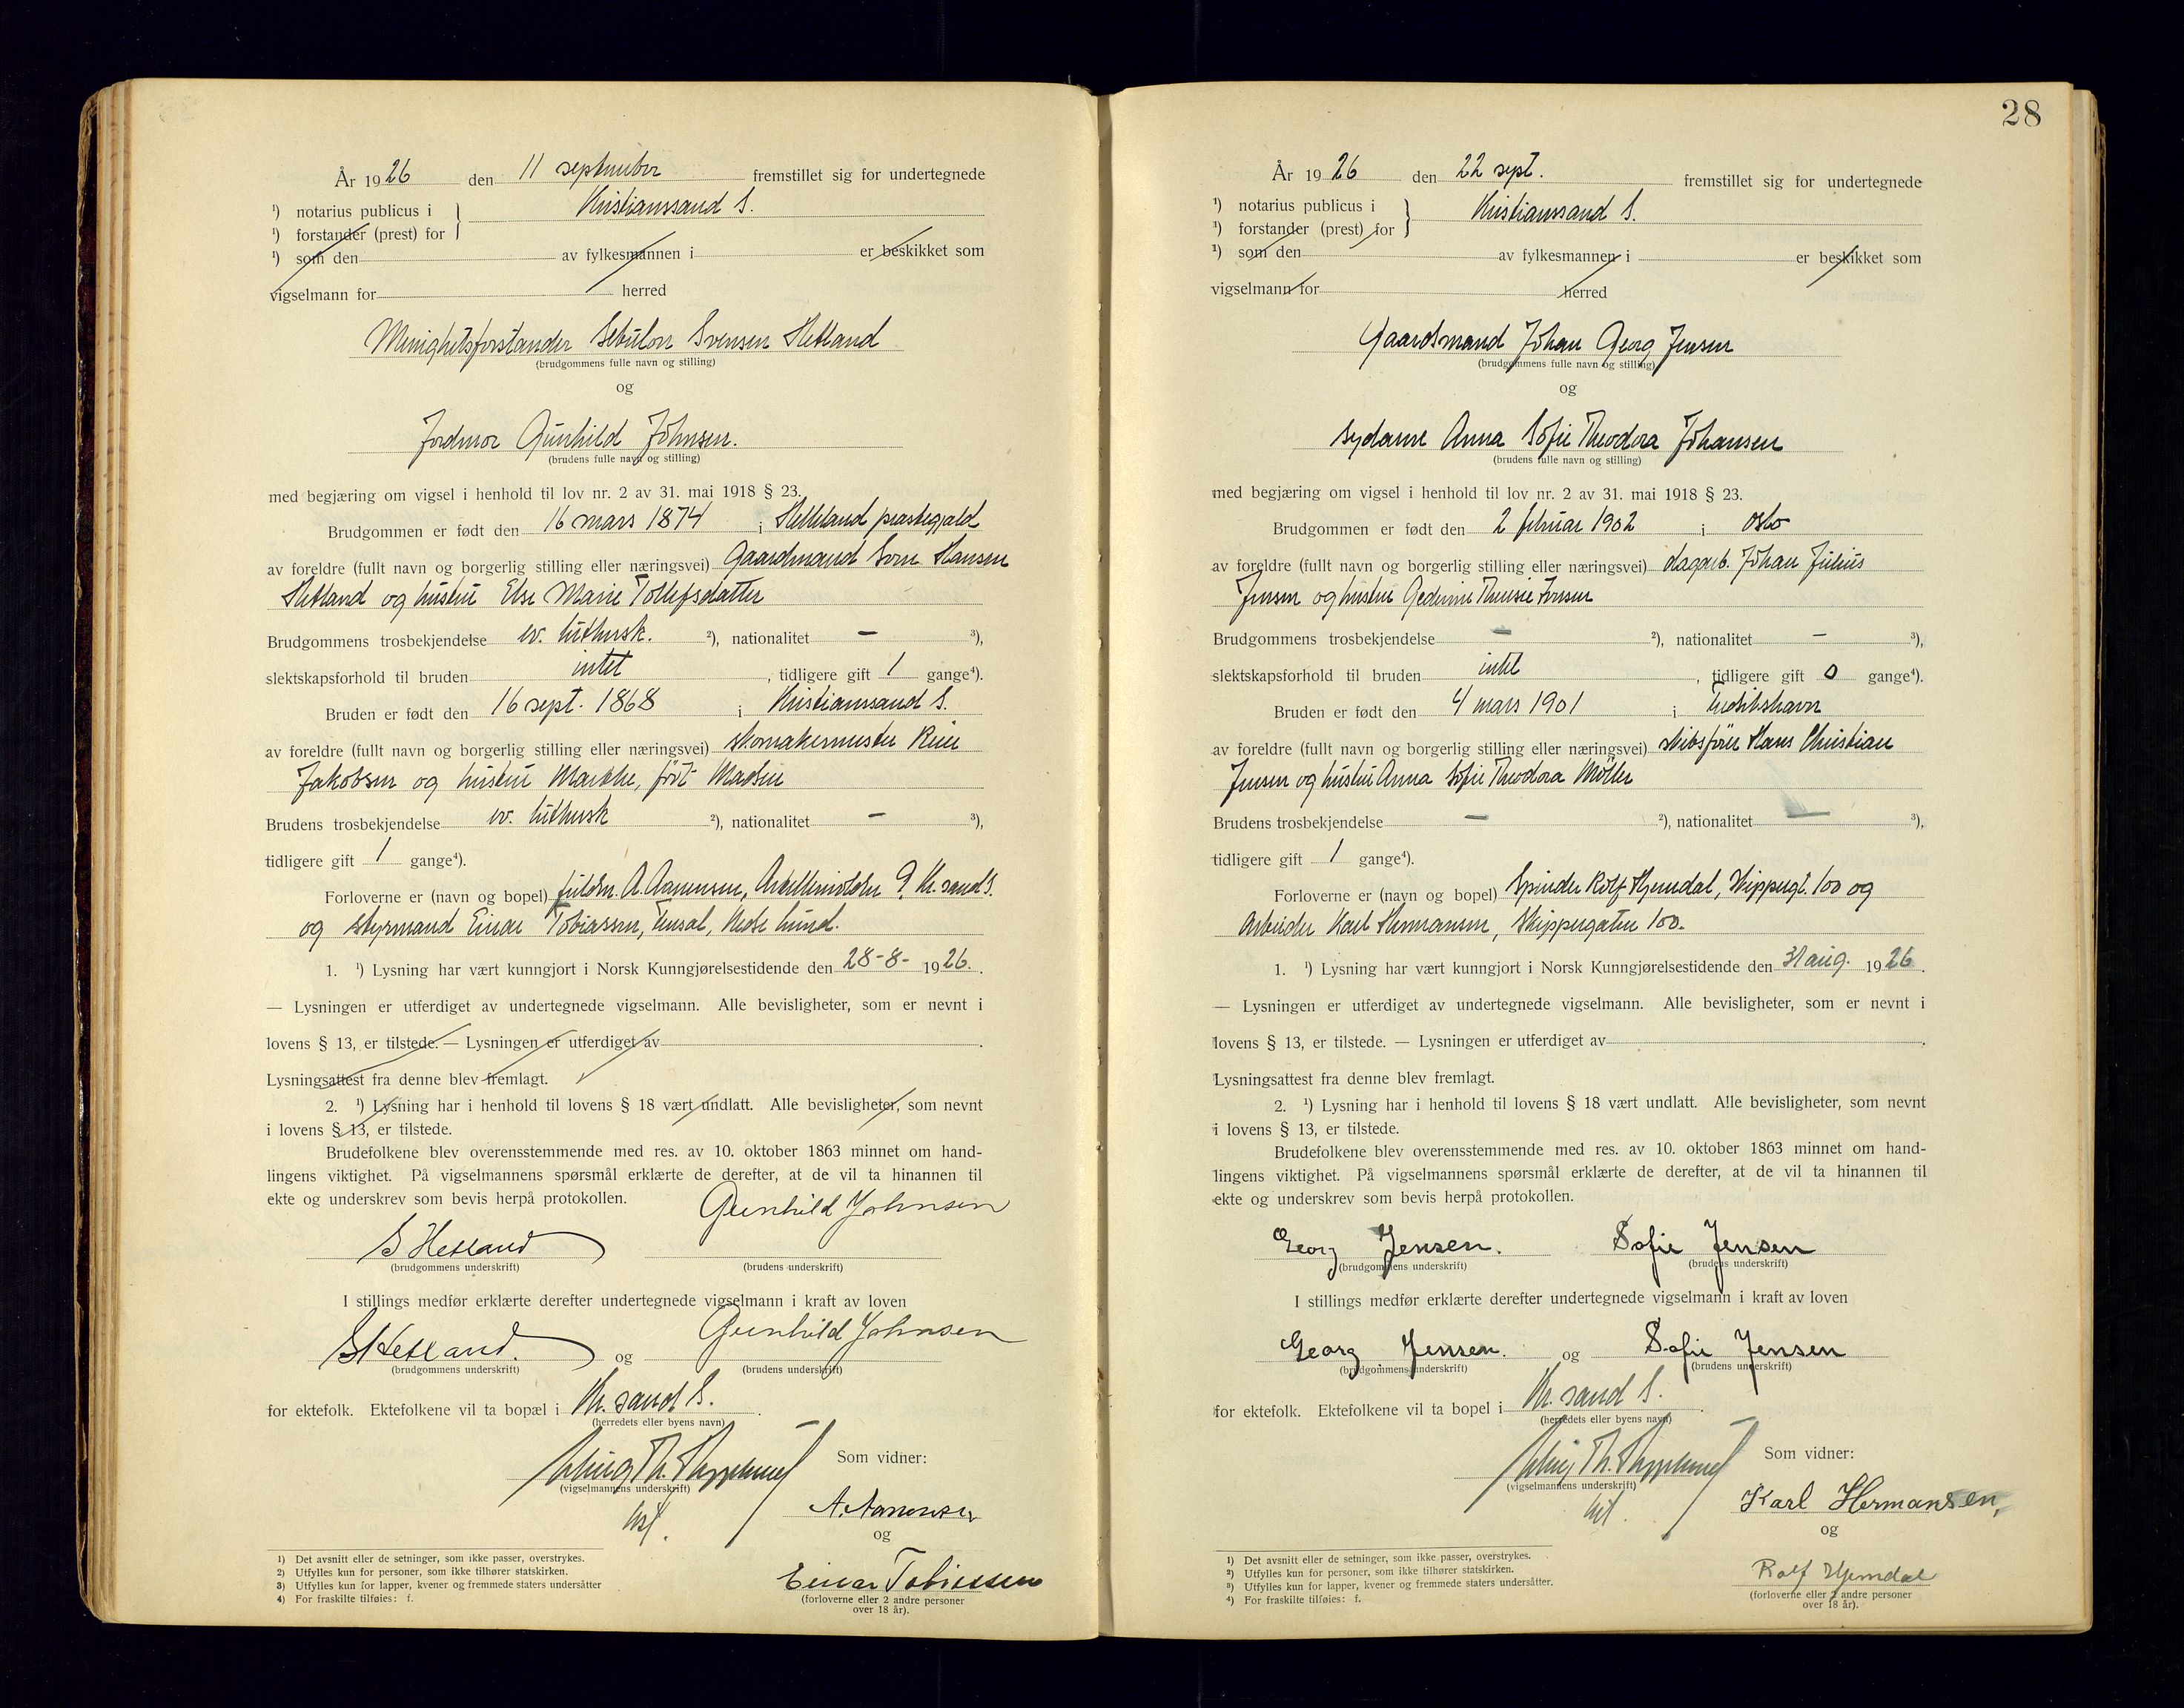 År 1926 den 11 september fremstillet sig for undertegnede
¹) notarius publicus i } Kristianssand S.
¹) forstander (prest) for
¹) som den av fylkesmannen i er beskikket som
vigselmann for herred
Menighetsforstander Sebulon Svensen Hetland
(brudgommens fulle navn og stilling)
og
Jordmor Gunhild Johnsen.
(brudens fulle navn og stilling)
med begjæring om vigsel i henhold til lov nr. 2 av 31. mai 1918 § 23.
Brudgommen er født den 16 mars 1874 i Helleland prestegjeld
av foreldre (fullt navn og borgerlig stilling eller næringsvei) Gaardmand Sven Hansen
Hetland og hustru Else Marie Tollefsdatter
Brudgommens trosbekjendelse ev. luthersk. ²), nationalitet — ³),
slektskapsforhold til bruden intet, tidligere gift 1 gange⁴).
Bruden er født den 16 sept. 1868 i Kristianssand S.
av foreldre (fullt navn og borgerlig stilling eller næringsvei) skomakermester Reier
Jakobsen og hustru Marthe, født Madsen
Brudens trosbekjendelse ev. luthersk ²), nationalitet — ³),
tidligere gift 1 gange⁴).
Forloverne er (navn og bopel) A. Aanensen, 9, Kr.sand S.
og styrmand Einar Tobiassen, Nedre Lund.
1. ¹) Lysning har vært kunngjort i Norsk Kunngjørelsestidende den 28-8- 1926.
— Lysningen er utferdiget av undertegnede vigselmann. Alle bevisligheter, som er nevnt i
lovens § 13, er tilstede. — Lysningen er utferdiget av .
Lysningsattest fra denne blev fremlagt.
2. ¹) Lysning har i henhold til lovens § 18 vært undlatt. Alle bevisligheter, som nevnt
i lovens § 13, er tilstede.
Brudefolkene blev overensstemmende med res. av 10. oktober 1863 minnet om hand-
lingens viktighet. På vigselmannens spørsmål erklærte de derefter, at de vil ta hinannen til
ekte og underskrev som bevis herpå protokollen.
S Hetland Gunhild Johnsen
(brudgommens underskrift) (brudens underskrift)
I stillings medfør erklærte derefter undertegnede vigselmann i kraft av loven
S Hetland. og Gunhild Johnsen
(brudgommens underskrift) (brudens underskrift)
for ektefolk. Ektefolkene vil ta bopæl i Kr.sand S.
(herredets eller byens navn)
Som vidner:
(vigselmannens underskrift)
A. Aanensen
og
Einar Tobiassen
(forloverne eller 2 andre personer
over 18 år).
1) Det avsnitt eller de setninger, som ikke passer, overstrykes.
2) Utfylles kun for personer, som ikke tilhører statskirken.
3) Utfylles kun for lapper, kvener og fremmede staters undersåtter
4) For fraskilte tilføies: f.
28
År 1926 den 22 sept. fremstillet sig for undertegnede
¹) notarius publicus i } Kristianssand S.
¹) forstander (prest) for
¹) som den av fylkesmannen i er beskikket som
vigselmann for herred
Gaardsmand Johan Georg Jensen
(brudgommens fulle navn og stilling)
og
sydame Anna Sofie Theodora Johansen
(brudens fulle navn og stilling)
med begjæring om vigsel i henhold til lov nr. 2 av 31. mai 1918 § 23.
Brudgommen er født den 2 februar 1902 i Oslo
av foreldre (fullt navn og borgerlig stilling eller næringsvei) dagarb. Johan Julius
Jensen og hustru Jensen
Brudgommens trosbekjendelse — ²), nationalitet — ³),
slektskapsforhold til bruden intet, tidligere gift 0 gange⁴).
Bruden er født den 4 mars 1901 i Fredrikshavn
av foreldre (fullt navn og borgerlig stilling eller næringsvei) skibsfører Hans Christian
Jensen og hustru Anna Sofie Theodora Möller
Brudens trosbekjendelse — ²), nationalitet — ³),
tidligere gift 1 gange⁴).
Forloverne er (navn og bopel) Spinder Rolf Hjemdal, Skippergt. 100 og
Arbeider Karl Hermansen, Skippergaten 100.
1. ¹) Lysning har vært kunngjort i Norsk Kunngjørelsestidende den 31 aug. 1926.
— Lysningen er utferdiget av undertegnede vigselmann. Alle bevisligheter, som er nevnt i
lovens § 13, er tilstede. — Lysningen er utferdiget av .
Lysningsattest fra denne blev fremlagt.
2. ¹) Lysning har i henhold til lovens § 18 vært undlatt. Alle bevisligheter, som nevnt
i lovens § 13, er tilstede.
Brudefolkene blev overensstemmende med res. av 10. oktober 1863 minnet om hand-
lingens viktighet. På vigselmannens spørsmål erklærte de derefter, at de vil ta hinannen til
ekte og underskrev som bevis herpå protokollen.
Georg Jensen. Sofie Jensen
(brudgommens underskrift) (brudens underskrift)
I stillings medfør erklærte derefter undertegnede vigselmann i kraft av loven
Georg Jensen. og Sofie Jensen
(brudgommens underskrift) (brudens underskrift)
for ektefolk. Ektefolkene vil ta bopel i Kr.sand S.
(herredets eller byens navn)
Som vidner:
(vigselmannens underskrift)
Karl Hermansen,
og
Rolf Hjemdal
(forloverne eller 2 andre personer
over 18 år).
1) Det avsnitt eller de setninger, som ikke passer, overstrykes.
2) Utfylles kun for personer, som ikke tilhører statskirken.
3) Utfylles kun for lapper, kvener og fremmede staters undersåtter.
4) For fraskilte tilføies: f.